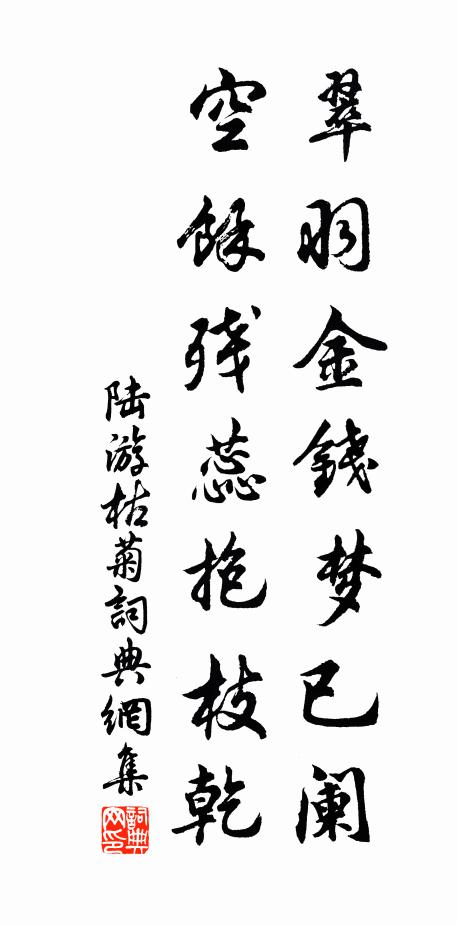 翠羽金錢梦已阑
空餘残蕊抱枝乾
陆游枯菊詞典網集
詞典网印